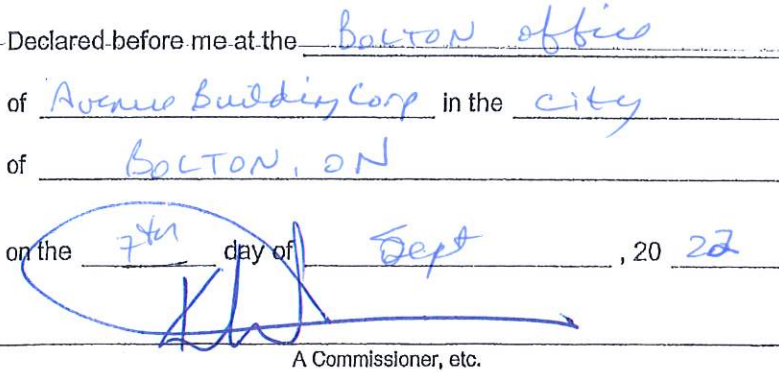 Declared before me at the Bolton office
of Avenue Building Corp in the city
of BOLTON, ON
on the 7th day of Sept, 20 22
A Commissioner, etc.